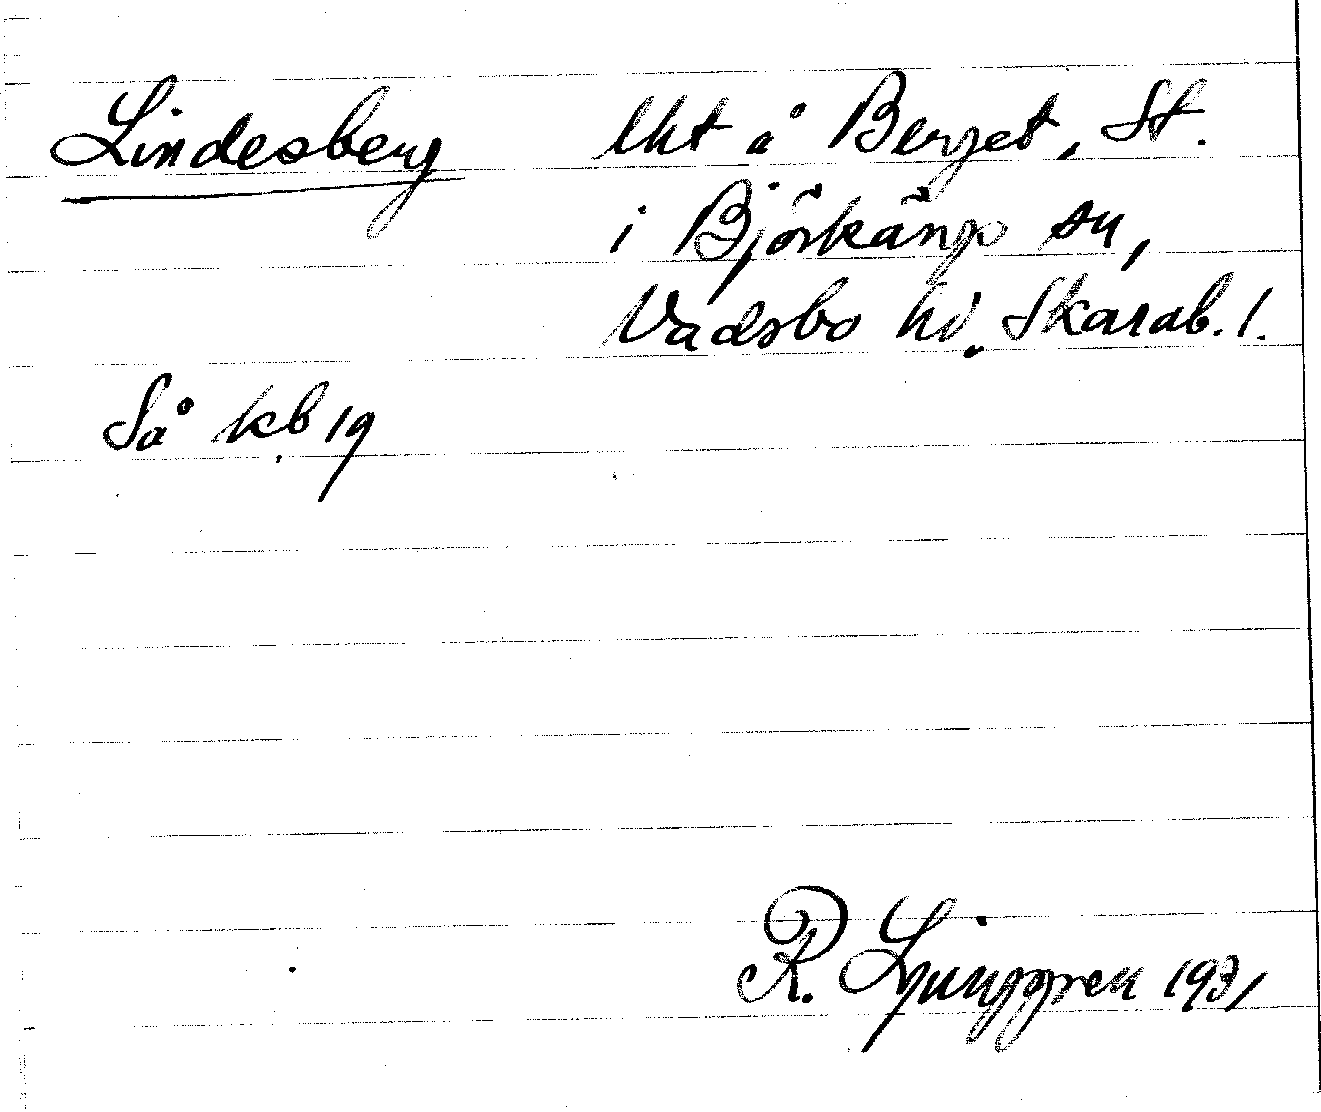 Lindesberg lht å Berget, St.
i Björkängs sn,
Vadsbo hd. Skarab. l.
Så kb 19
R. Ljunggren 1931